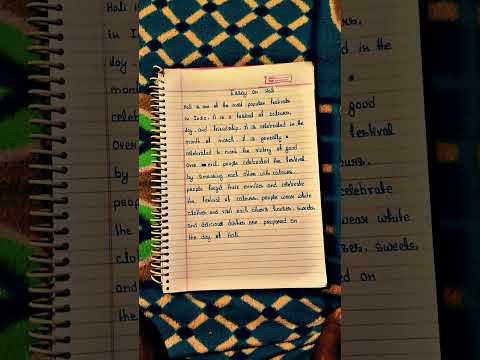 Essay on Holi
Holi is one of the most popular festivals
in India. It is a festival of colours,
joy, and friendship. It is celebrated in the
month of march. It is generally
celebrated to mark the victory of good
over evil. people celebrated the festival
by smearing each other with colours.
people forget their enmities and celebrate
the festival of colours. people wear white
clothes and visit each other's houses. sweets
and delicious dishes are prepared on
the day of holi.